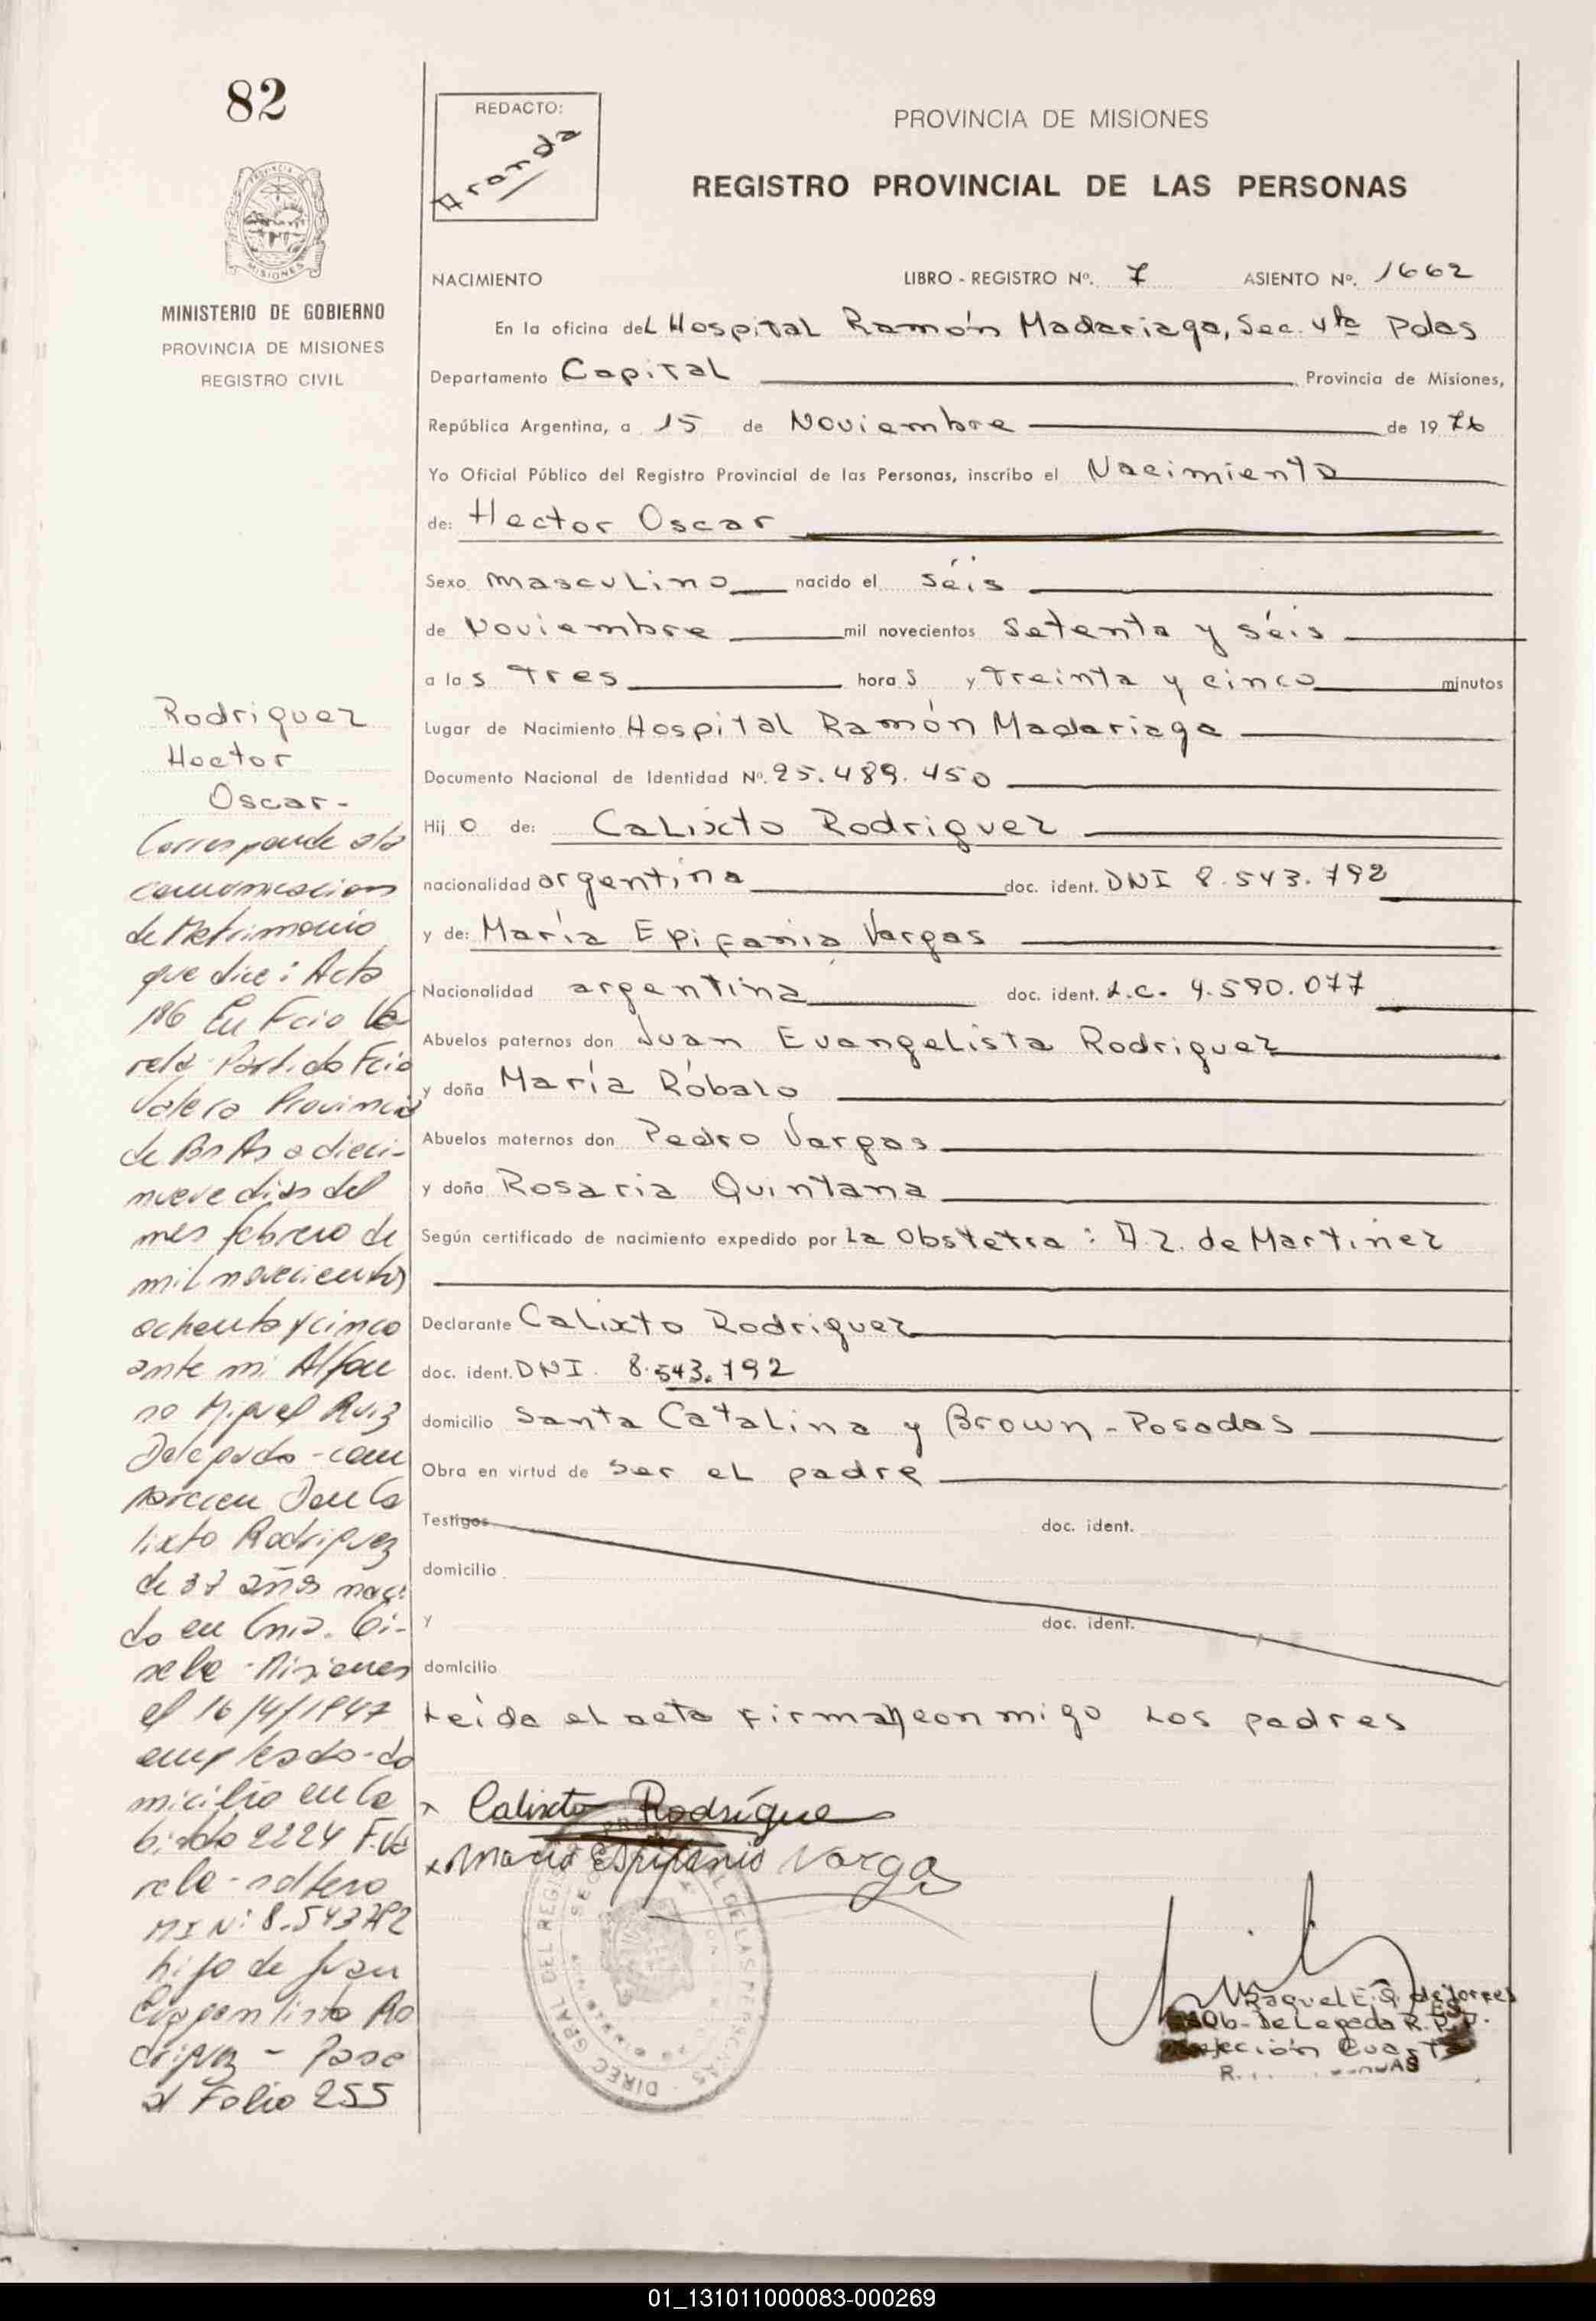 82
REDACTO:
Aranda
PROVINCIA DE MISIONES
REGISTRO PROVINCIAL DE LAS PERSONAS
MISIONES
MINISTERIO DE GOBIERNO
PROVINCIA DE MISIONES
REGISTRO CIVIL
NACIMIENTO LIBRO - REGISTRO Nº. 7 ASIENTO Nº. 1662
En la oficina del Hospital Ramón Madariaga, Sec. 4ta Pdas
Departamento Capital Provincia de Misiones,
República Argentina, a 15 de Noviembre de 1976
Yo Oficial Público del Registro Provincial de las Personas, inscribo el Nacimiento
de: Hector Oscar
Sexo masculino nacido el séis
de Noviembre mil novecientos setenta y séis
a las tres horas y treinta y cinco minutos
Lugar de Nacimiento Hospital Ramón Madariaga
Documento Nacional de Identidad Nº. 25.489.450
Hijo de: Calixto Rodriguez
nacionalidad argentina doc. ident. DNI 8.543.792
y de: María Epifania Vargas
Nacionalidad argentina doc. ident. L.C. 4.590.077
Abuelos paternos don Juan Evangelista Rodriguez
y doña María Róbalo
Abuelos maternos don Pedro Vargas
y doña Rosaria Quintana
Según certificado de nacimiento expedido por La Obstetra: A.Z. de Martinez
Declarante Calixto Rodriguez
doc. ident. DNI. 8.543.792
domicilio Santa Catalina y Brown - Posadas
Obra en virtud de ser el padre
Testigos doc. ident.
domicilio
y doc. ident.
domicilio
Leida el acta firman conmigo los padres
x Calixto Rodrígue
x Maria Epifanio Vargas
DIREC GRAL DEL REGIS DE LAS PERSONAS
Raquel E. Q. de Torres
Sub-Delegada R.P.P.
Sección Cuarta
Rodriguez
Hector
Oscar-
Corresponde a la
comunicacion
de Matrimonio
que dice: Acta
186 En Fcio Va
rela Partido Fcio
Valera Provincia
de Bs As a dieci-
nueve dias del
mes febrero de
mil novecientos
ochenta y cinco
ante mi Alfon
so Miguel Ruiz
Delegado - com
parecen Don Ca
lixto Rodriguez
de 37 años naci
do en Cnia. Gi-
sela - Misiones
el 16/4/1947
empleado - do
micilio en Ca
bildo 2224 F. Va
rela - soltero
MI Nº 8.543792
hijo de Juan
Evangelista Ro
driguez - Pase
al Folio 255
01_131011000083-000269